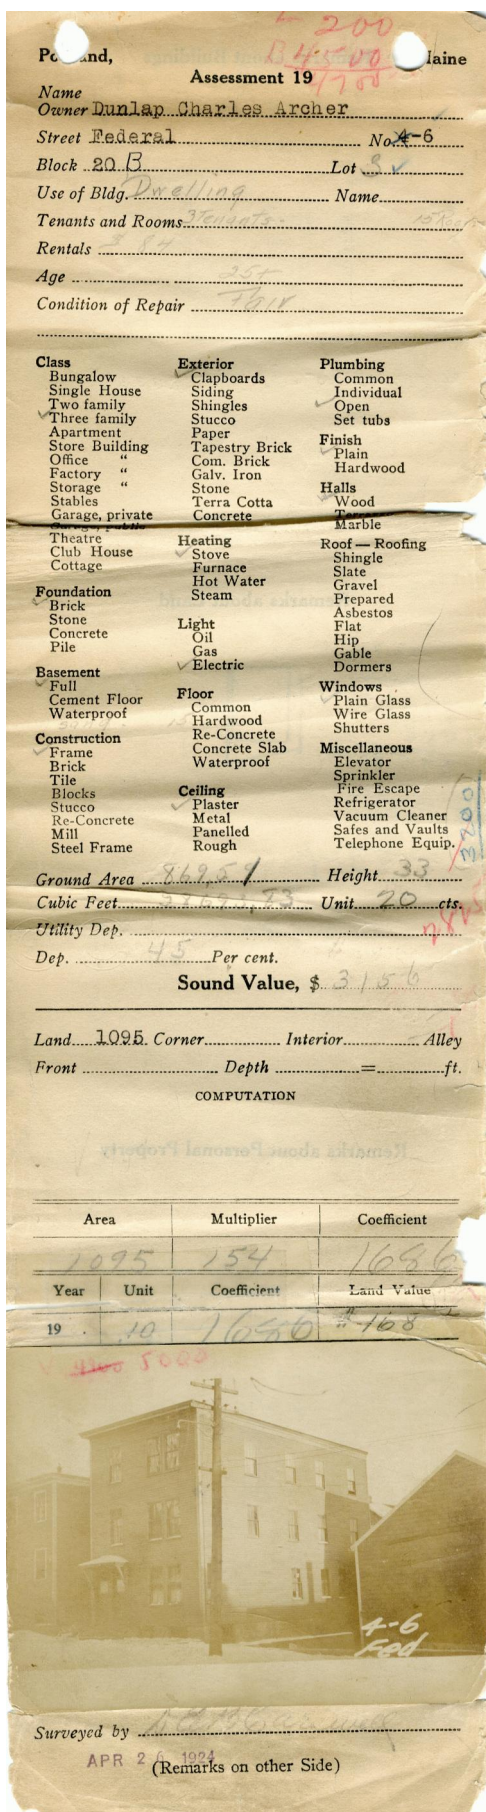 L 200
B 4500
4700
Po and, Maine
Assessment 19
Name
Owner Dunlap Charles Archer
Street Federal No. 4-6
Block 20 B Lot 3
Use of Bldg. Dwelling Name
Tenants and Rooms 3 Tenants - 15 Rooms
Rentals $ 84
Age 25+
Condition of Repair Fair
Class
Bungalow
Single House
Two family
Three family
Apartment
Store Building
Office "
Factory "
Storage "
Stables
Garage, private
Garage, public
Theatre
Club House
Cottage
Foundation
Brick
Stone
Concrete
Pile
Basement
Full
Cement Floor
Waterproof
Construction
Frame
Brick
Tile
Blocks
Stucco
Re-Concrete
Mill
Steel Frame
Exterior
Clapboards
Siding
Shingles
Stucco
Paper
Tapestry Brick
Com. Brick
Galv. Iron
Stone
Terra Cotta
Concrete
Heating
Stove
Furnace
Hot Water
Steam
Light
Oil
Gas
Electric
Floor
Common
Hardwood
Re-Concrete
Concrete Slab
Waterproof
Ceiling
Plaster
Metal
Panelled
Rough
Plumbing
Common
Individual
Open
Set tubs
Finish
Plain
Hardwood
Halls
Wood
Terrazzo
Marble
Roof — Roofing
Shingle
Slate
Gravel
Prepared
Asbestos
Flat
Hip
Gable
Dormers
Windows
Plain Glass
Wire Glass
Shutters
Miscellaneous
Elevator
Sprinkler
Fire Escape
Refrigerator
Vacuum Cleaner
Safes and Vaults
Telephone Equip.
3200
Ground Area 869,59 Height 33
Cubic Feet Unit 20 cts.
Utility Dep.
Dep. 45 Per cent.
Sound Value, $ 3156
Land 1095 Corner Interior Alley
Front Depth = ft.
COMPUTATION
Remarks about Personal Property
Area Multiplier Coefficient
1095 154 1686
Year Unit Coefficient Land Value
19 .10 1686 $168
4700 5000
4-6
Fed
Surveyed by
APR 26 1924
(Remarks on other Side)